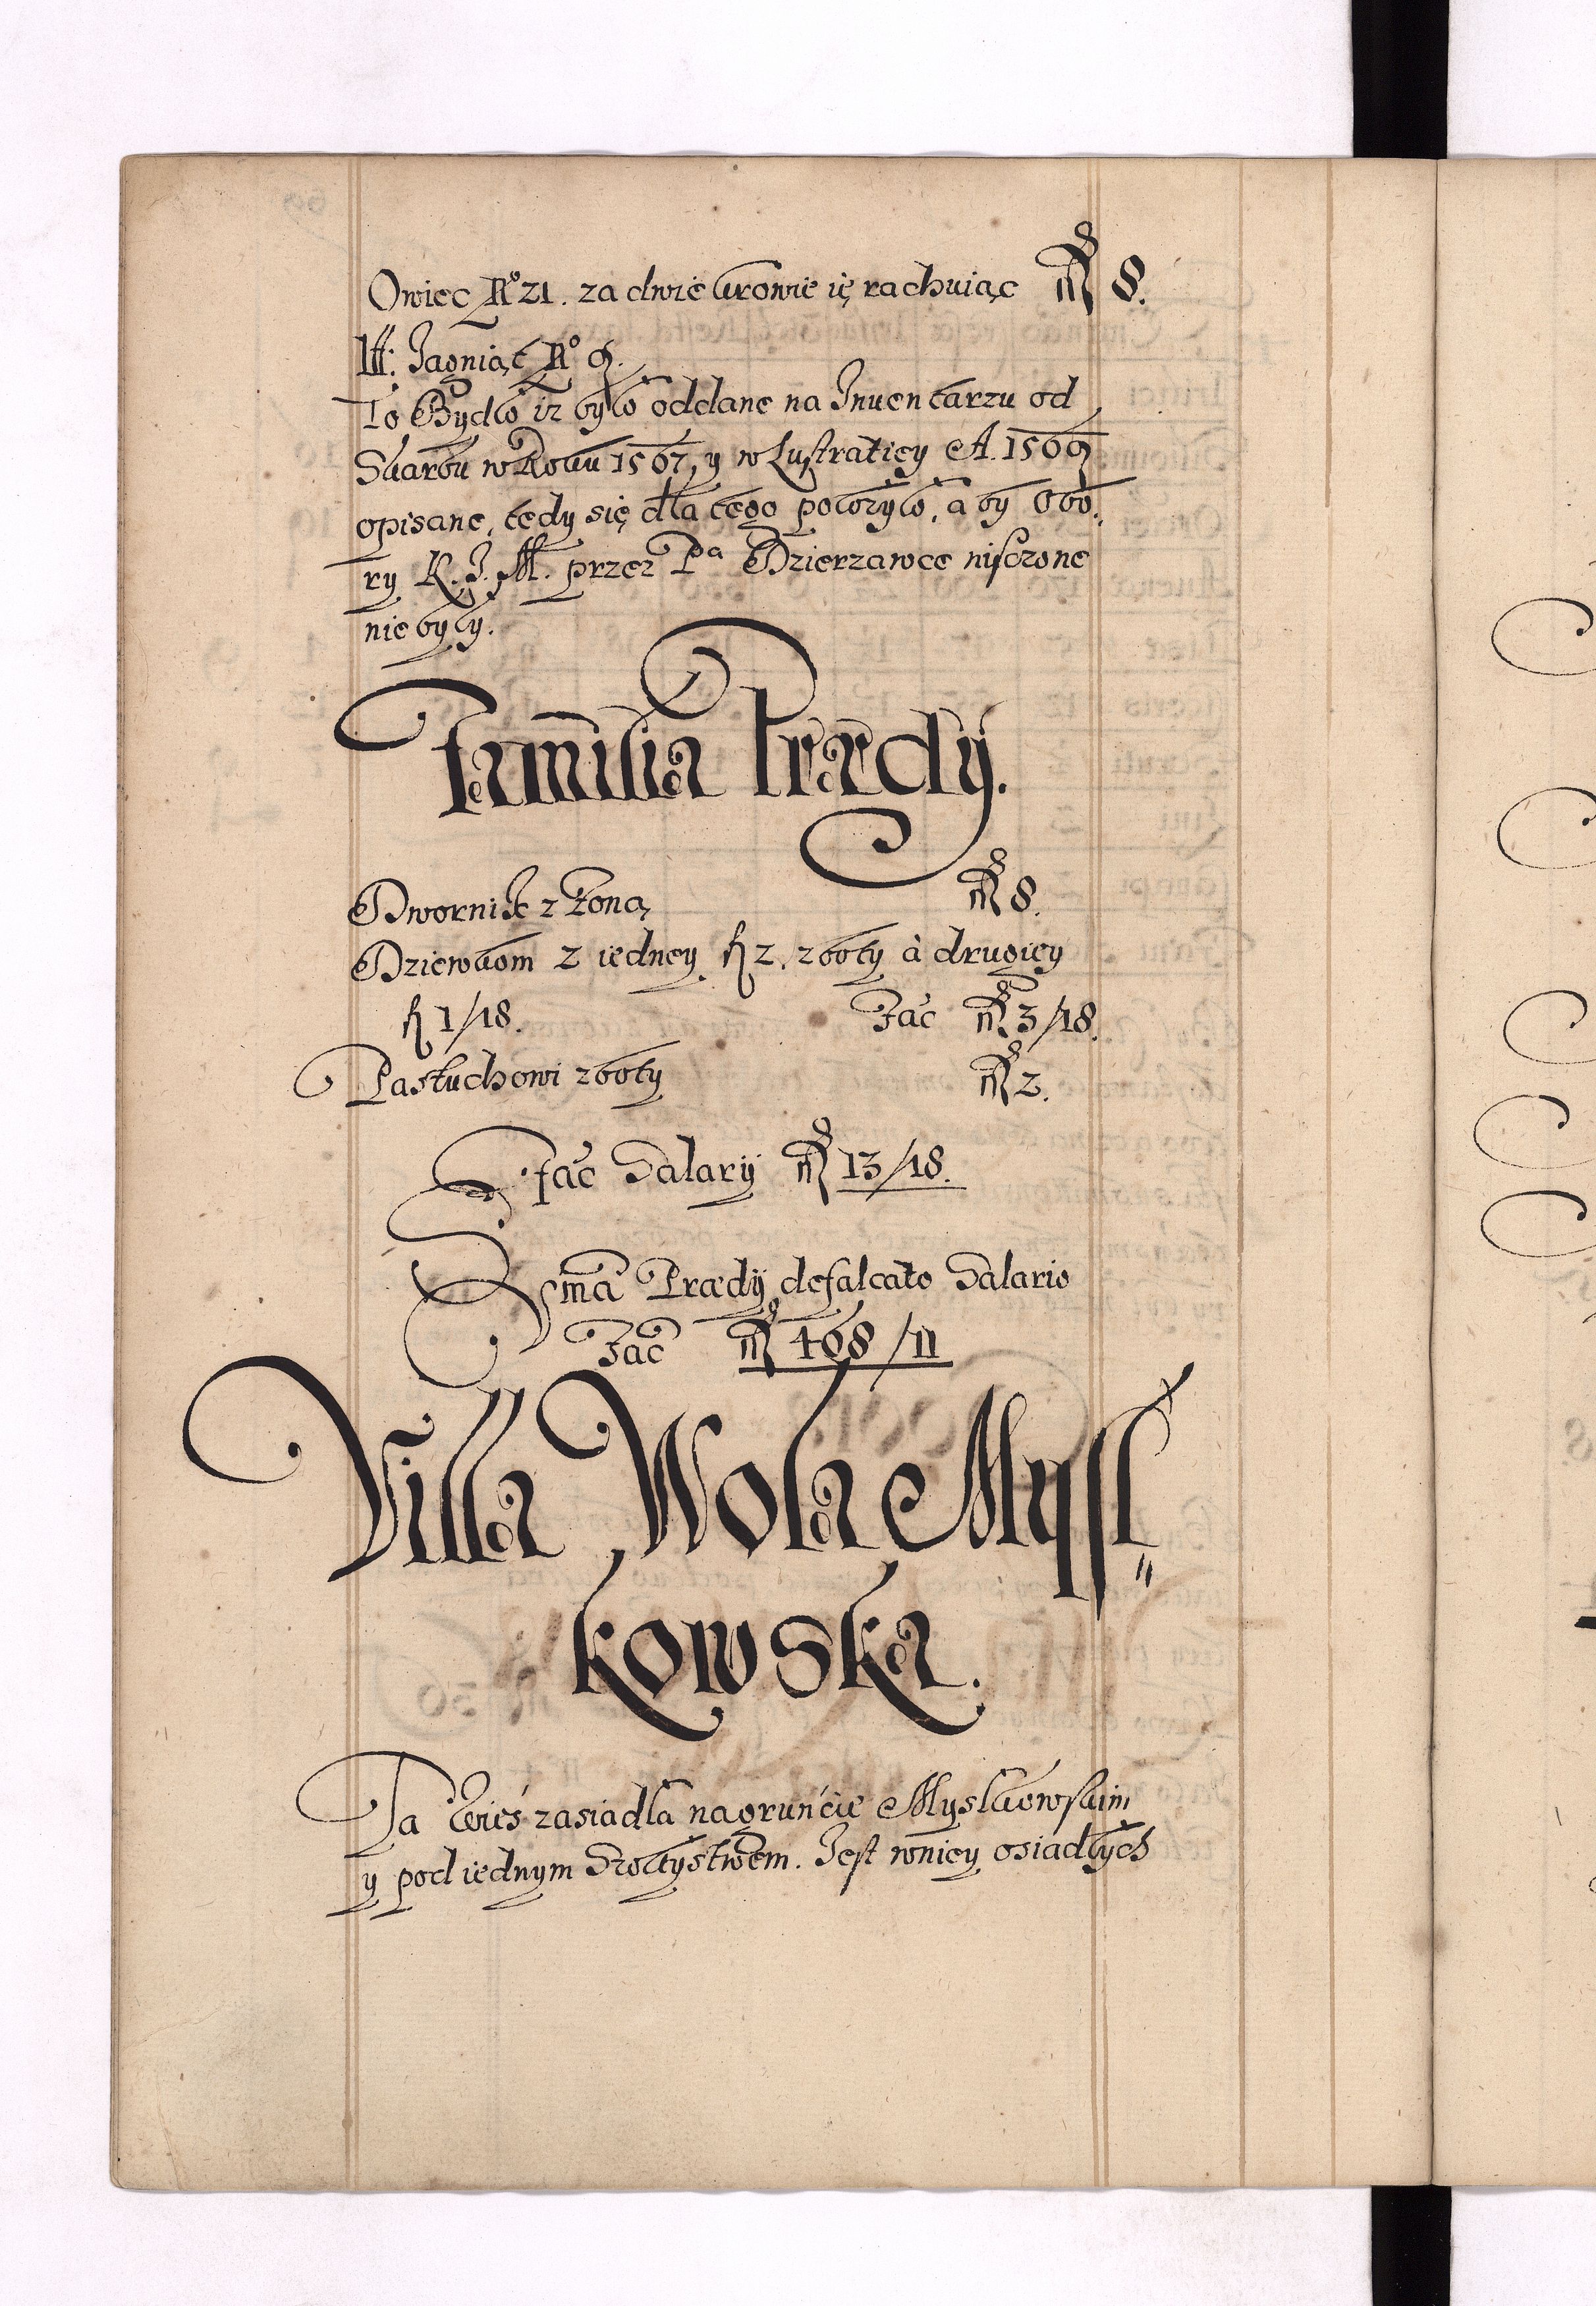 Owiec N° 21. za dwie krowie ię rachuiąc fl 8.
Itt: Jagniąt N° 9.
To Bydło iz było oddane na Inuentarzu od
Skarbu w Roku 1567, y w Lustratiey A. 1569
opisane, tedy się dla tego położyło, a by Obo,
ry K. J. M. przez Pa Dzierzawce nisczone
nie były.
Familia Prædÿ.
Dwornik z Zoną fl 8.
Dziewkom z iedney fl 2, zboty à drugiey
fl 1/18. Fac fl 3/18.
Pastuchowi zboty fl 2.
fac Salarÿ fl 13/18.
Sma Prædÿ defalcato Salario
Fac fl 468/11
Villa Wola Mysl„
kowska.
Ta Wieś zasiadła na gruńcie Myslkowskim
y pod iednym Szołtystwem. Jest w niey osiadłych